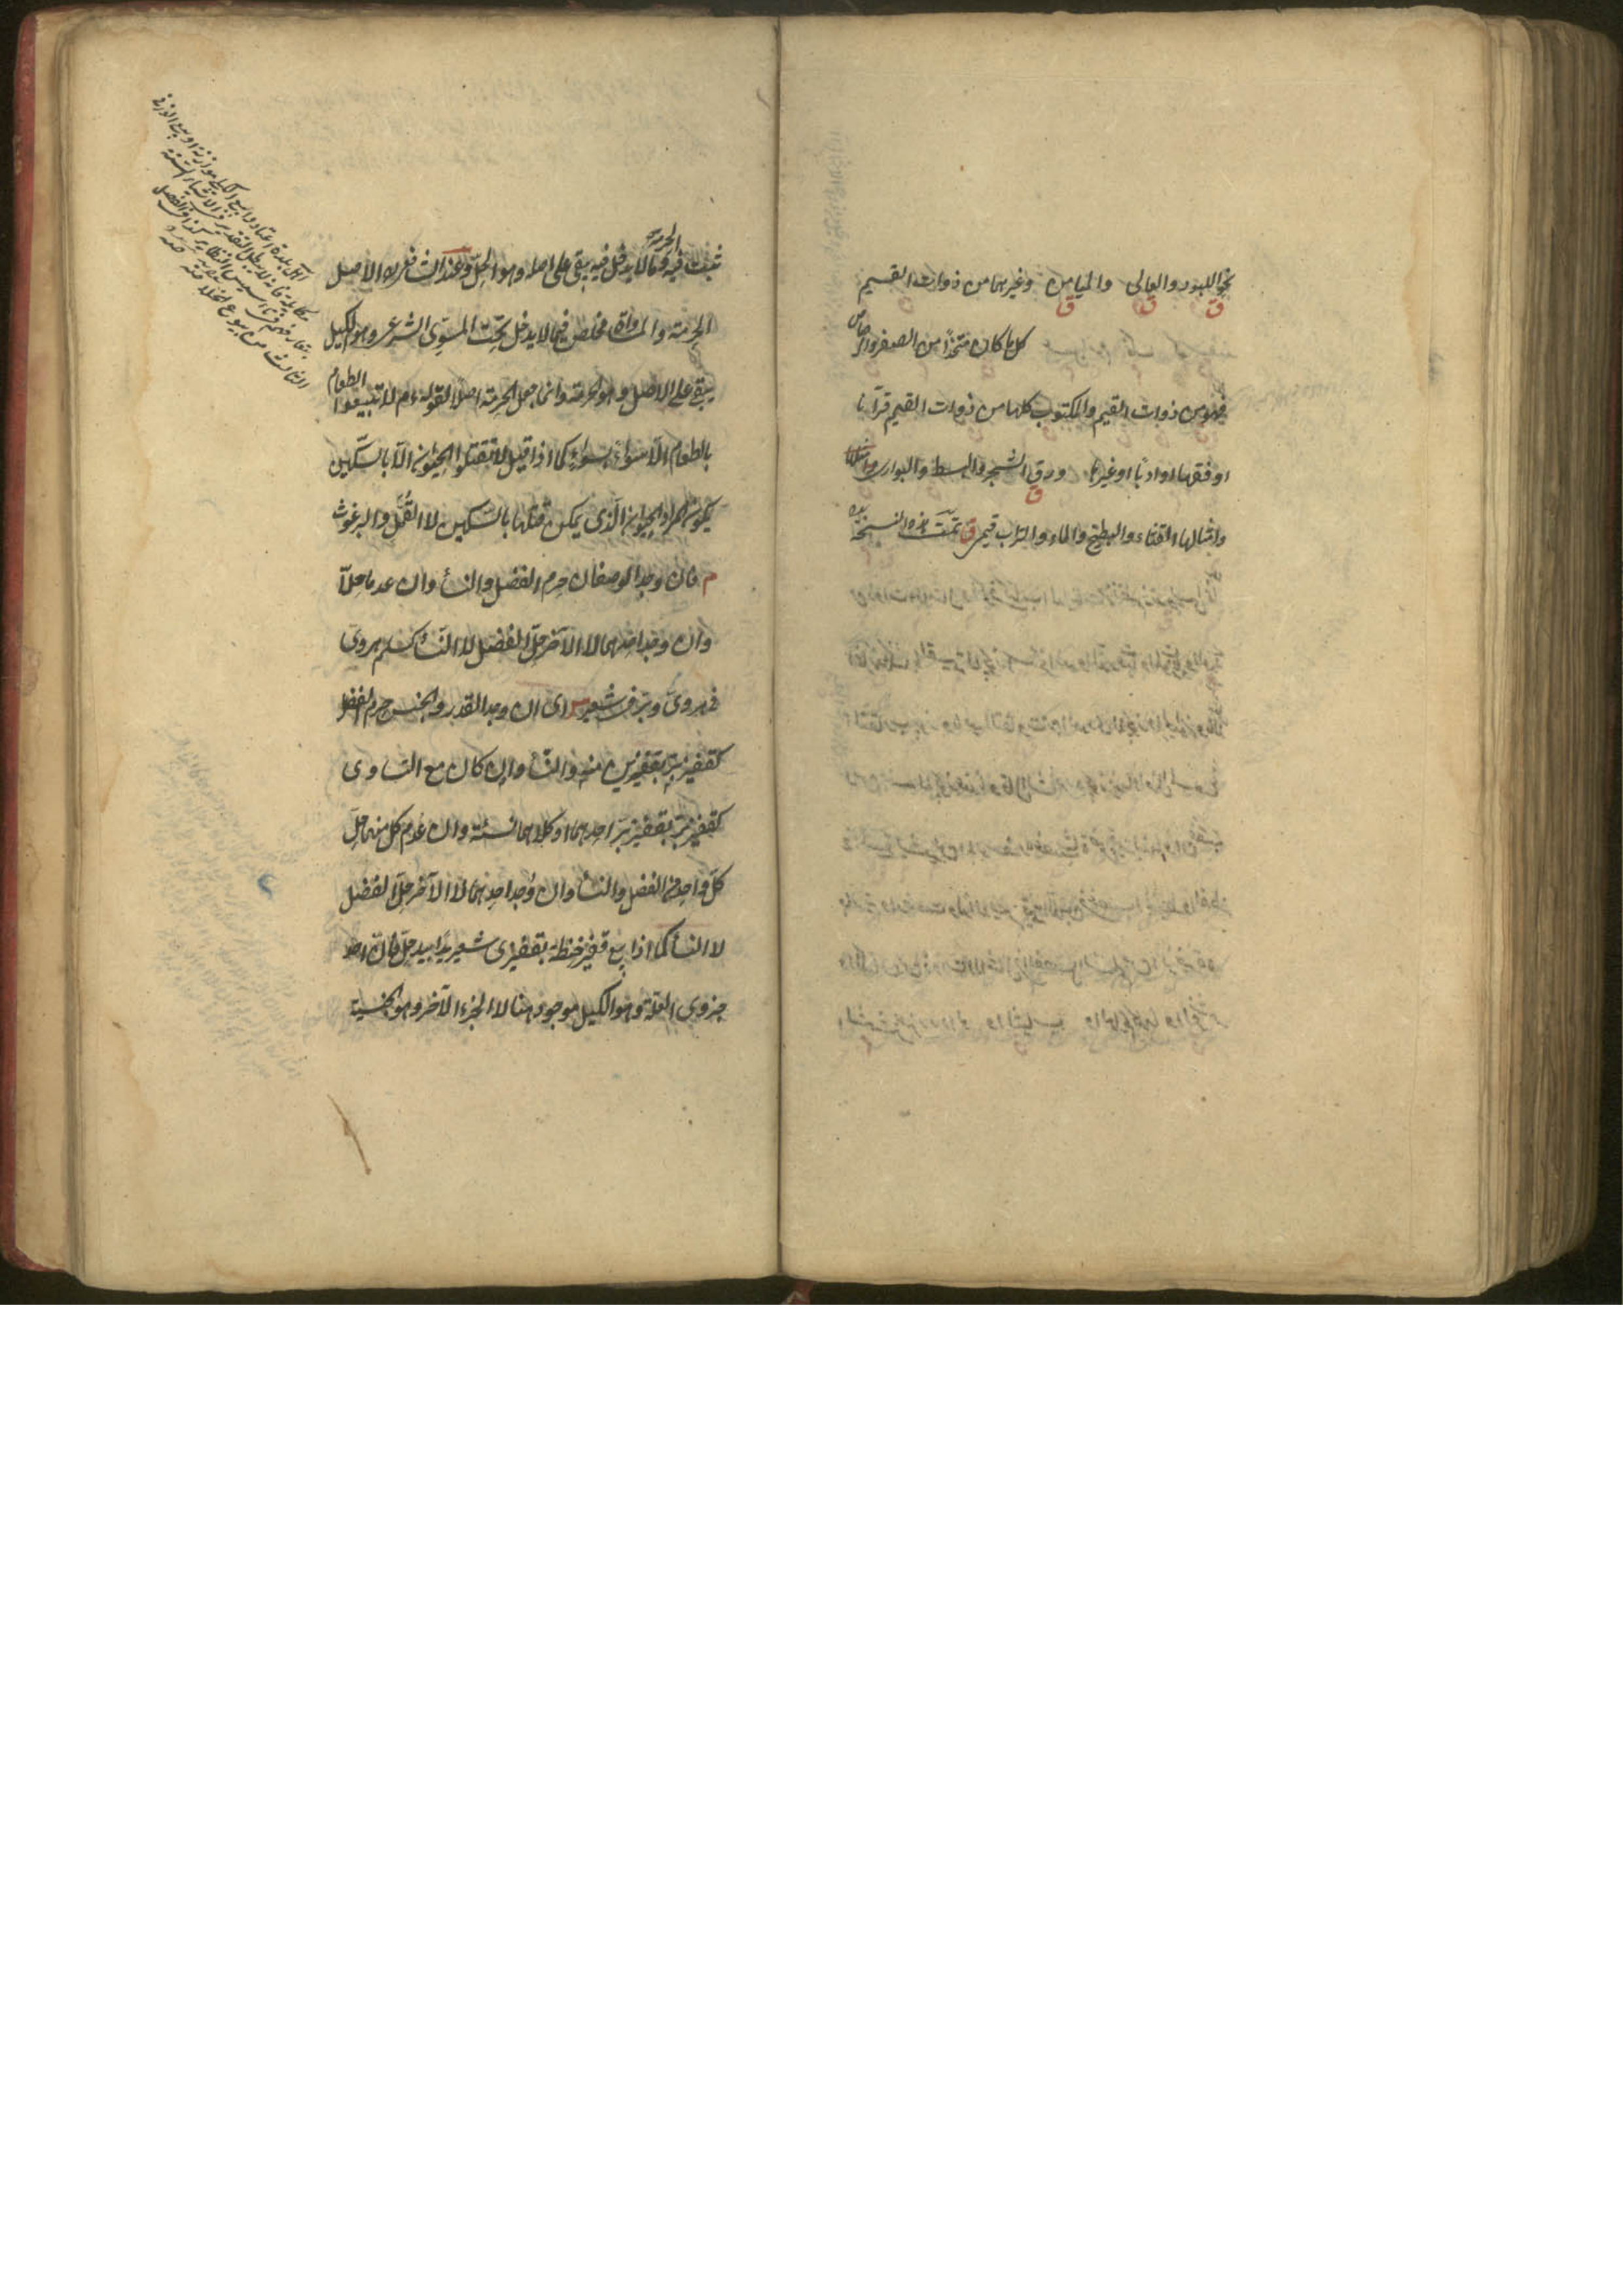 نحو اللبود والعالى والميامن وغيرهما من ذوات القيم
ق ق ق
كل ما كان متخذا من الصفر والرصاص
فهو من ذوات القيم والمكتوب كلها من ذوات القيم قرآنا
او فقها او ادبا او غيرها ورق الشجر والبسط والبوارى وامثالها
ق
وامثالها القثاء والبطيخ والماء والتراب قيمى ق تمت هذه النسخة
ثبت فيه الحرمة وما لا يدخل فيه يبقى على اصله وهو الحل وعند الشافعى ره الاصل
الحرمة والمساواة مخلص فيما لا يدخل تحت المسوى الشرعى وهو الكيل
يبقى على الاصل وهو الحرمة وانما جعل الحرمة اصلا لقوله ءم لا تبيعوا الطعام
بالطعام الا سواء بسواء كما اذا قيل لا تقتلوا الحيوان الا بالسكين
يكون المراد الحيوان الذى يمكن قتلها بالسكين لا القمل والبرغوث
م فان وجد الوصفان حرم الفضل والنسأ وان عدما حلا
وان وجد احدهما لا الآخر حل الفضل لا النسأ كسلم هروى
فى هروى وبر فى شعير ش اى ان وجد القدر والجنس حرم الفضل
كقفيز بر بقفيزين منه والنسأ وان كان مع التساوى
كقفيز بر بقفيز بر احدهما او كلاهما نسئة وان عدم كل منهما حل
كل واحد من الفضل والنسأ وان وجد احدهما لا الآخر حل الفضل
لا النسأ كما اذا بيع قفيز حنطة بقفيزى شعير يدا بيد حل فان احد
جزوى العلة وهو الكيل موجود هنا لا الجزء الآخر وهو الجنسية